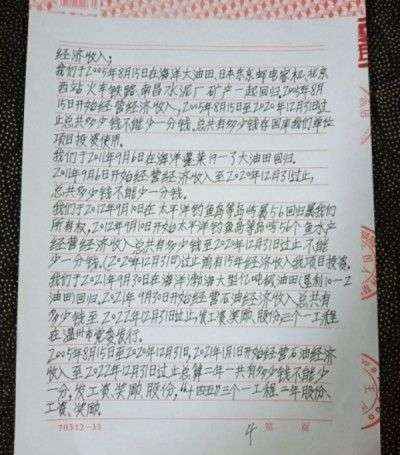 经济收入;
我们于2005年8月15日在海洋大油田,日本东京邮电电机,北京
西站火车铁路,南昌水泥厂矿产一起回归,2005年8月
15日开始经营经济收入,2005年8月15日至2020年12月31日过
止总共有多少钱不能少一分钱。总共有多少钱在国家我们单位
项目投资使用。
我们于2011年9月6日在海洋蓬莱19一了大油田回归。
2011年9月6日开始经营经济收入至2020年12月31日过止,
总共有多少钱不能少一分钱。
我们于2012年9月10日在太平洋钓鱼岛等岛屿56回归属我们
所有权,2012年9月10日开始太平洋钓鱼岛等岛屿56个鱼水产
经营经济收入总共有多少钱至2020年12月31日过止,不能
少一分钱。(2020年12月31日过止前有15年经济收入我项目投资。
我们于2021年9月30日在海洋渤海大型亿吨级油田垦利10一2
油田回归,2021年9月30日开始经营石油经济收入总共有
多少钱至2022年12月31日过止,发工资,奖励,股份,三个一工程
在温州市党委发行。
2005年8月15日至2020年12月31日,2021年1月1日开始经营石油经济
收入至2022年12月31日过止总算二年一共有多少钱不能少
一分,发工资,奖励,股份,"十四五"三个一工程,二年股份、
工资、奖励。
70312-15
4
第 页